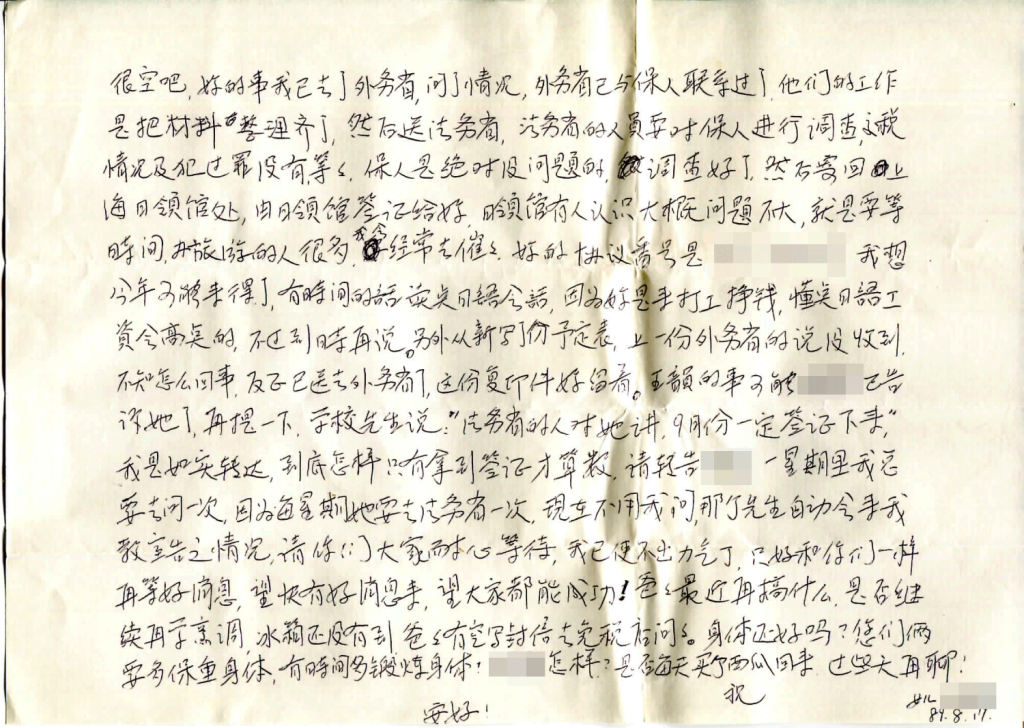 很空吧,好的事我已去了外务省,问了情况,外务省已与保人联系过了,他们的工作
是把材料整理齐了,然后送法务省,法务省的人员要对保人进行调查,交税
情况及犯过罪没有等等,保人是绝对没问题的,调查好了,然后寄回上
海日领馆处,由日领馆签证给好,日领馆有人认识大概问题不大,就是要等
時间,办旅游的人很多,我会经常去催催,好的协议番号是 我想
今年可能来得了,有時间的話读点日語会話,因为好是来打工挣钱,懂点日語工
資会高点的,不过到時再说。另外从新写了份予定表,上一份外务省的说没收到,
不知怎么回事,反正已送去外务省了,这份复印件好留着。王韻的事可能 已告
诉她了,再提一下,学校先生说:“法务省的人对她讲,9月份一定签证下来”
我是如实转达,到底怎样只有拿到签证才算数,请转告 一星期里我总
要去问一次,因为每星期她要去法务省一次,现在不用我问,那个先生自动会来我
教室告之情况,请你们大家耐心等待,我已使不出力气了,只好和你们一样
再等好消息,望快有好消息来,望大家都能成功!爸爸最近再搞什么,是否继
续再学烹调,冰箱还没有到爸爸有空写封信去免税店问问。身体还好吗?您们俩
要多保重身体,有時间多锻炼身体! 怎样?是否每天买西瓜回来,过些天再聊!
祝
安好!
89.8.17.